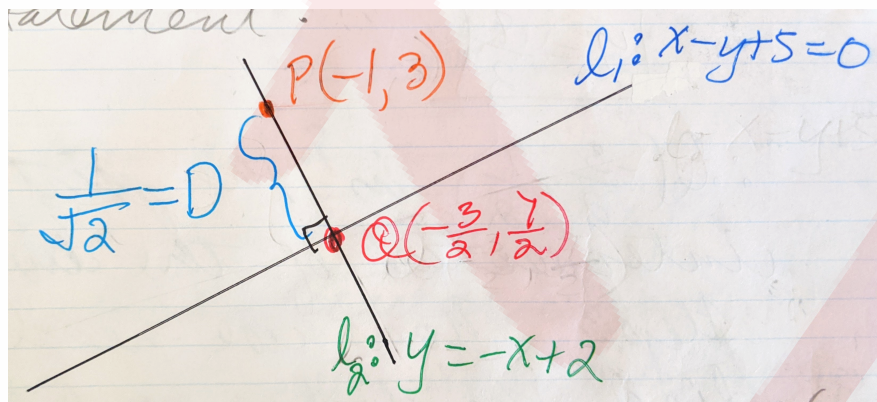 P(-1, 3)
l₁: x-y+5=0
1/√2 = D
Q(-3/2, 7/2)
l₂: y = -x+2